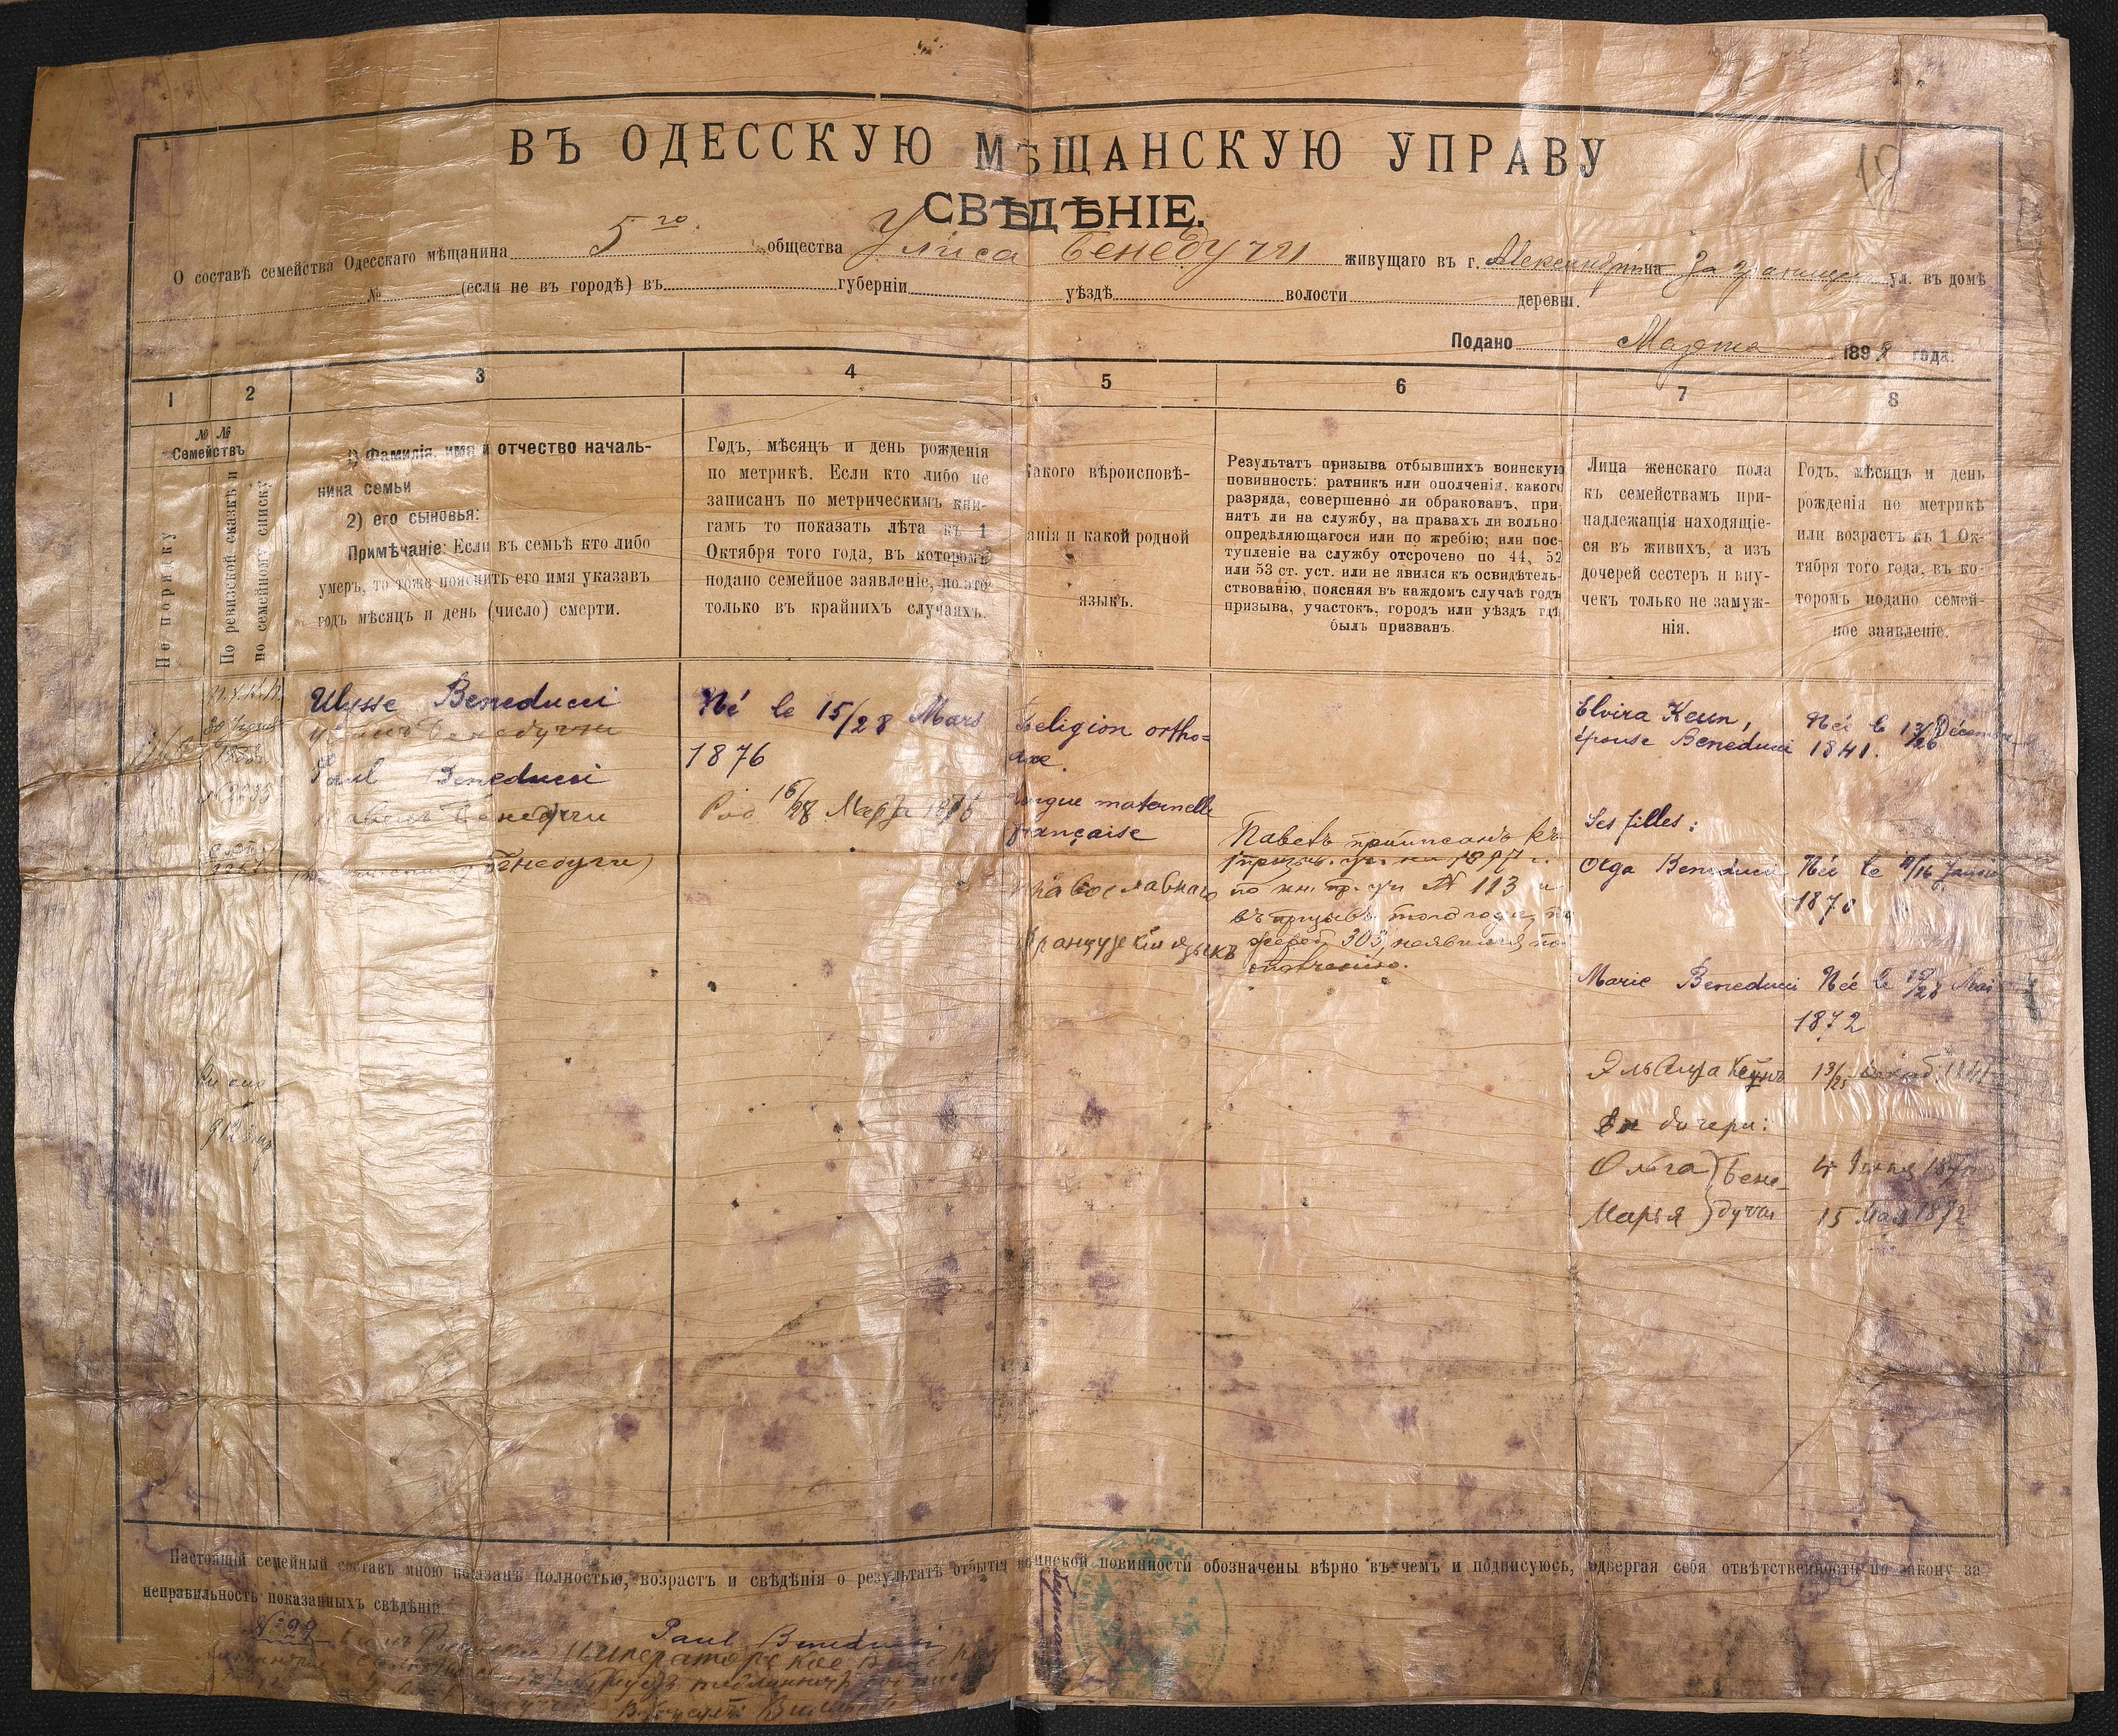 ВЪ ОДЕССКУЮ МѢЩАНСКУЮ УПРАВУ
СВѢДѢНІЕ.
О составѣ семейства Одесскаго мѣщанина 5го общества Улиса Бенедучи живущаго въ г. Александріи за границей ул. въ домѣ
№ (если не въ городѣ) въ губерніи уѣздѣ волости деревни.
Подано Марта 1898 года.
1 2 3 4 5 6 7 8
№ №
Семействъ
По порядку
По ревизской сказкѣ и
по семейному списку
1) Фамилія, имя и отчество началь-
ника семьи
2) его сыновья:
Примѣчаніе: Если въ семьѣ кто либо
умеръ, то тоже пояснить его имя указавъ
годъ мѣсяцъ и день (число) смерти.
Годъ, мѣсяцъ и день рожденія
по метрикѣ. Если кто либо не
записанъ по метрическимъ кни-
гамъ то показать лѣта къ 1
Октября того года, въ которомъ
подано семейное заявленіе, но это
только въ крайнихъ случаяхъ.
какого вѣроисповѣ-
анія и какой родной
языкъ.
Результатъ призыва отбывшихъ воинскую
повинность: ратникъ или ополченія, какого
разряда, совершенно ли обракованъ, при-
нятъ ли на службу, на правахъ ли вольно-
опредѣляющагося или по жребію; или пос-
тупленіе на службу отсрочено по 44, 52
или 53 ст. уст. или не явился къ освидѣтель-
ствованію, поясняя въ каждомъ случаѣ годъ
призыва, участокъ, городъ или уѣздъ гдѣ
былъ призванъ.
Лица женскаго пола
къ семействамъ при-
надлежащія находящіе-
ся въ живихъ, а изъ
дочерей сестеръ и вну-
чекъ только не замуж-
нія.
Годъ, мѣсяцъ и день
рожденія по метрикѣ
или возрастъ къ 1 Ок-
тября того года, въ ко-
торомъ подано семей-
ное заявленіе.
Ulysse Beneducci
Улисъ Бенедучи
Paul Beneducci
Павелъ Бенедучи
Бенедучи)
Né le 15/28 Mars
1876
Род 16/28 Марта 1876
Religion ortho=
doxe.
langue maternelle
française
православнаго
французскій языкъ
Павелъ приписанъ къ
призыв. уч. на 1897 г.
по кн. пр. уч № 113 и
въ призывъ того года, по
жереб. 303, неявился по
Elvira Keun,
épouse Beneducci
Née le 13/26 Décembre
1841.
Ses filles:
Olga Beneducci
Née le 4/16 Janvier
1870
Marie Beneducci
Née le 15/28 Mai
1872
Эльвира Кеунъ 13/25 декаб. 1841
Ея дочери:
Ольга } Бене-
Марья } дучи
4 1870
15 Мая 1872
Настоящій семейный составъ мною показанъ полностью, возрастъ и свѣдѣнія о результатѣ отбытія воинской повинности обозначены вѣрно въ чемъ и подписуюсь, одвергая себя отвѣтственности по закону за
неправильность показанныхъ свѣдѣній.
№ 29
Paul Beneducci
Императорское